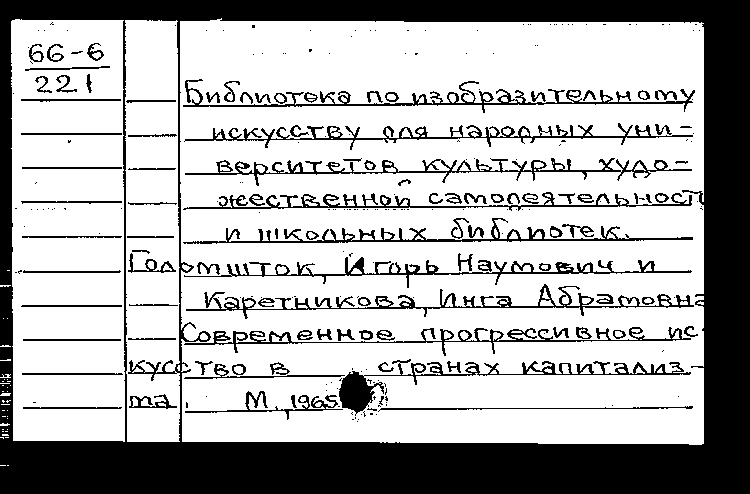 66-6
221
Библиотека по изобразительному
искусству для народных уни-
верситетов культуры, худо-
жественной самодеятельност
и школьных библиотек.
Голомшток, Игорь Наумович и
Каретникова, Инга Абрамовна
Современное прогрессивное ис-
кусство в странах капитализ-
ма. М., 1965